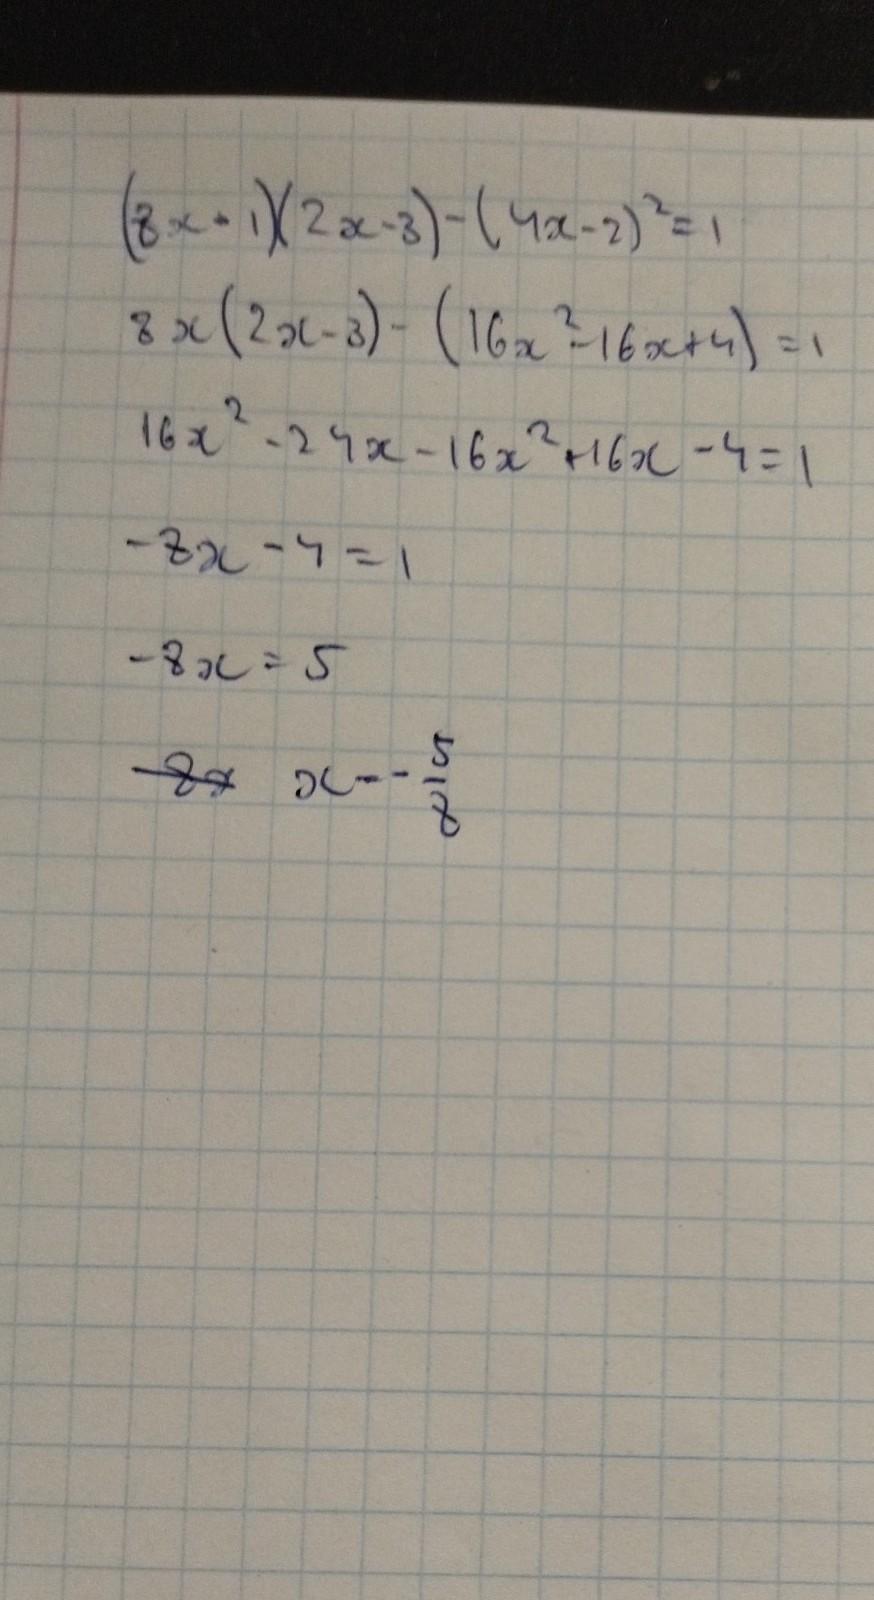 (8x · 1)(2x - 3) - (4x - 2)² = 1
8x(2x - 3) - (16x² - 16x + 4) = 1
16x² - 24x - 16x² + 16x - 4 = 1
-8x - 4 = 1
-8x = 5
-8x x = -5/8